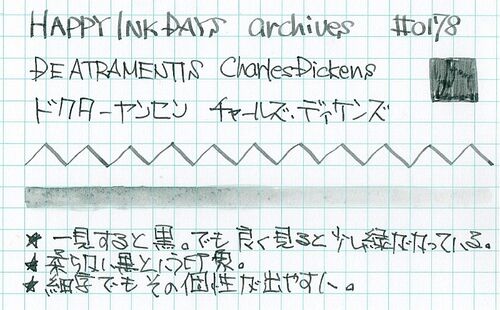 HAPPY INK DAYS archives #0178
DE ATRAMENTIS Charles Dickens
ドクターヤンセン チャールズ・ディケンズ
★ 一見すると黒。でも良く見ると少し緑がかっている。
★ 柔らない黒という印象。
★ 細字でもその個性が出やすい。